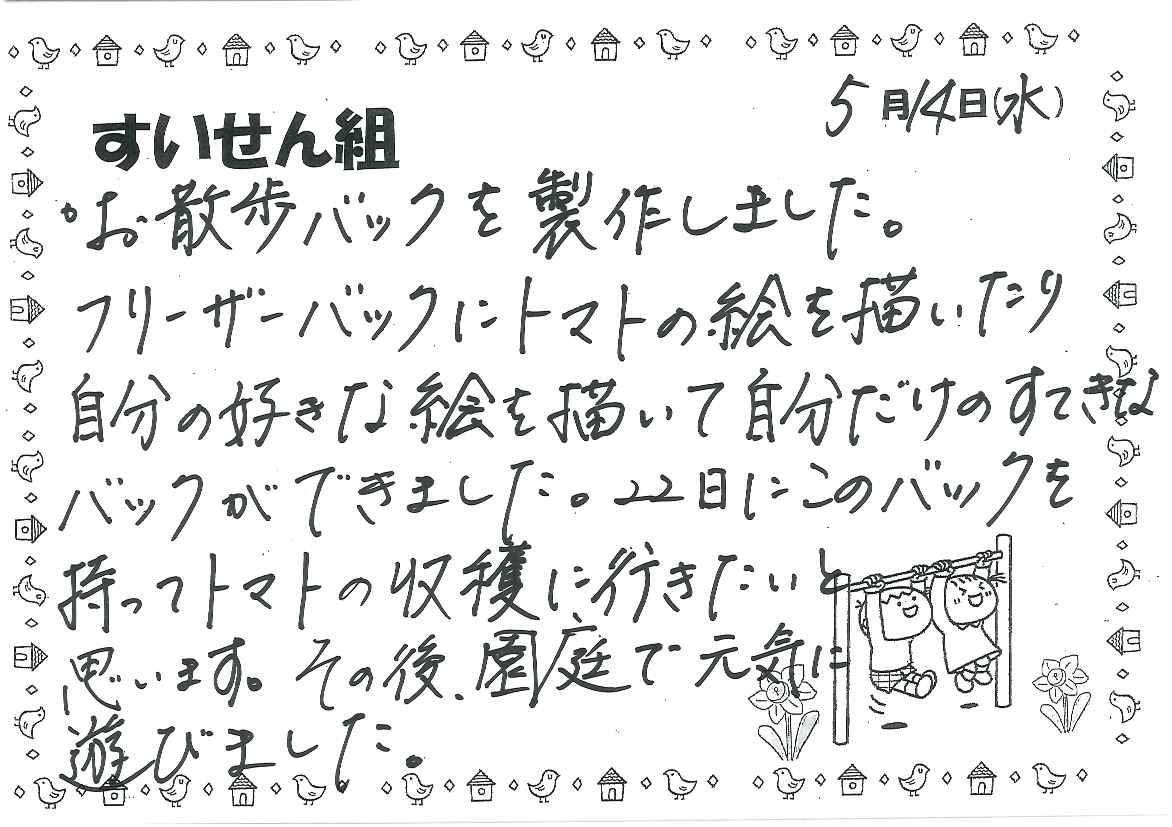 5月14日(水)
すいせん組
・お散歩バックを製作しました。
フリーザーバックにトマトの絵を描いたり
自分の好きな絵を描いて自分だけのすてきな
バックができました。22日にこのバックを
持ってトマトの収穫に行きたいと
思います。その後、園庭で元気に
遊びました。